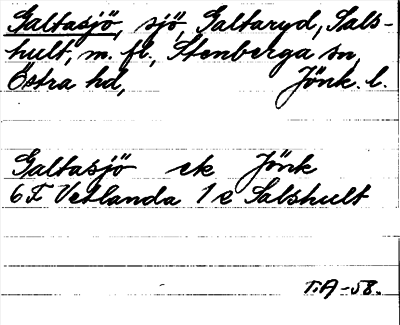 Galtasjö, sjö, Galtaryd, Sals-
hult, m. fl., Stenberga sn,
Östra hd, Jönk. l.
Galtasjö ek Jönk
6F Vetlanda 1e Salshult
T.A-58.